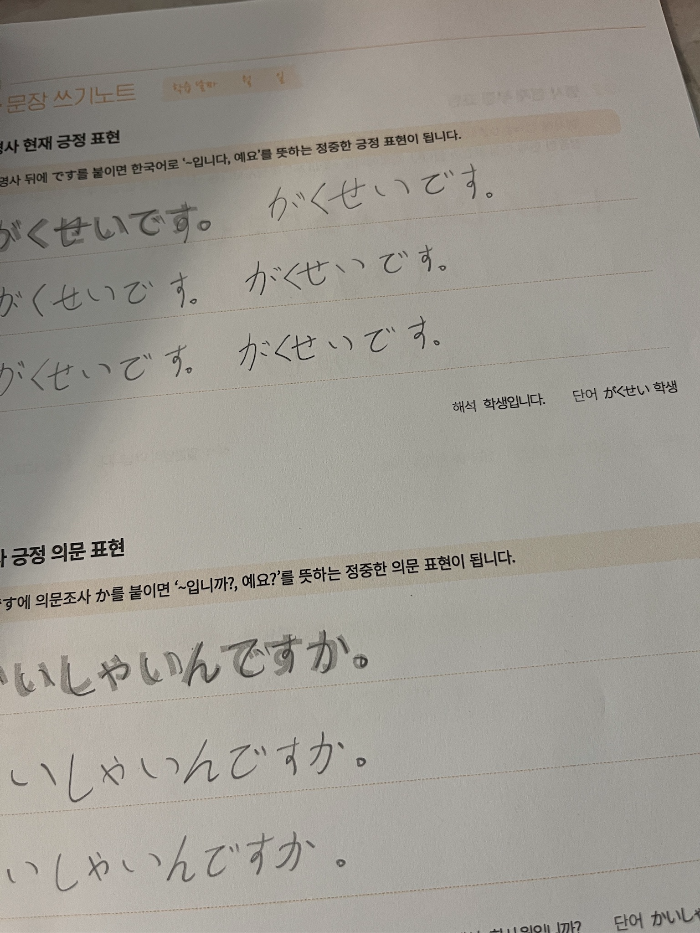 문장 쓰기노트 학습 날짜 월 일
명사 현재 긍정 표현
명사 뒤에 です를 붙이면 한국어로 ‘~입니다, 예요’를 뜻하는 정중한 긍정 표현이 됩니다.
がくせいです。 がくせいです。
がくせいです。 がくせいです。
がくせいです。 がくせいです。
해석 학생입니다. 단어 がくせい 학생
긍정 의문 표현
です에 의문조사 か를 붙이면 ‘~입니까?, 예요?’를 뜻하는 정중한 의문 표현이 됩니다.
いしゃいんですか。
いしゃいんですか。
いしゃいんですか。
회사원입니까? 단어 かいしゃ